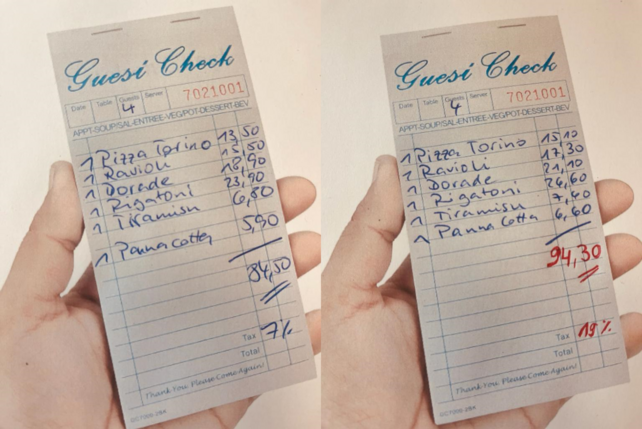 Guest Check
Date Table Guests Server 7021001
4
APPT-SOUP/SAL-ENTREE-VEG/POT-DESSERT-BEV
1 Pizza Torino 13,50
1 Ravioli 15,50
1 Dorade 18,90
1 Rigatoni 23,90
1 Tiramisu 6,80
1 Panna cotta 5,90
84,50
Tax 7%
Total
Thank You Please Come Again!
Guest Check
Date Table Guests Server 7021001
4
APPT-SOUP/SAL-ENTREE-VEG/POT-DESSERT-BEV
1 Pizza Torino 15,10
1 Ravioli 17,30
1 Dorade 21,10
1 Rigatoni 26,60
1 Tiramisu 7,60
1 Panna cotta 6,60
94,30
Tax 19%
Total
Thank You Please Come Again!